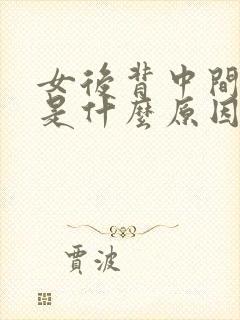 女後背中間
是什麼原因
賈波